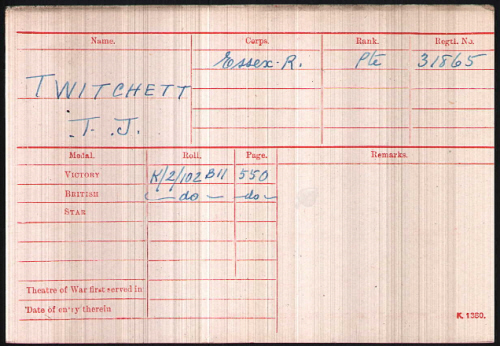 Name. Corps. Rank. Regtl. No.
Essex. R. Pte 31865
TWITCHETT
T. J.
Medal. Roll. Page. Remarks.
VICTORY K/2/102 B11 550
BRITISH — do — — do —
STAR
Theatre of War first served in
Date of entry therein
K. 1380.